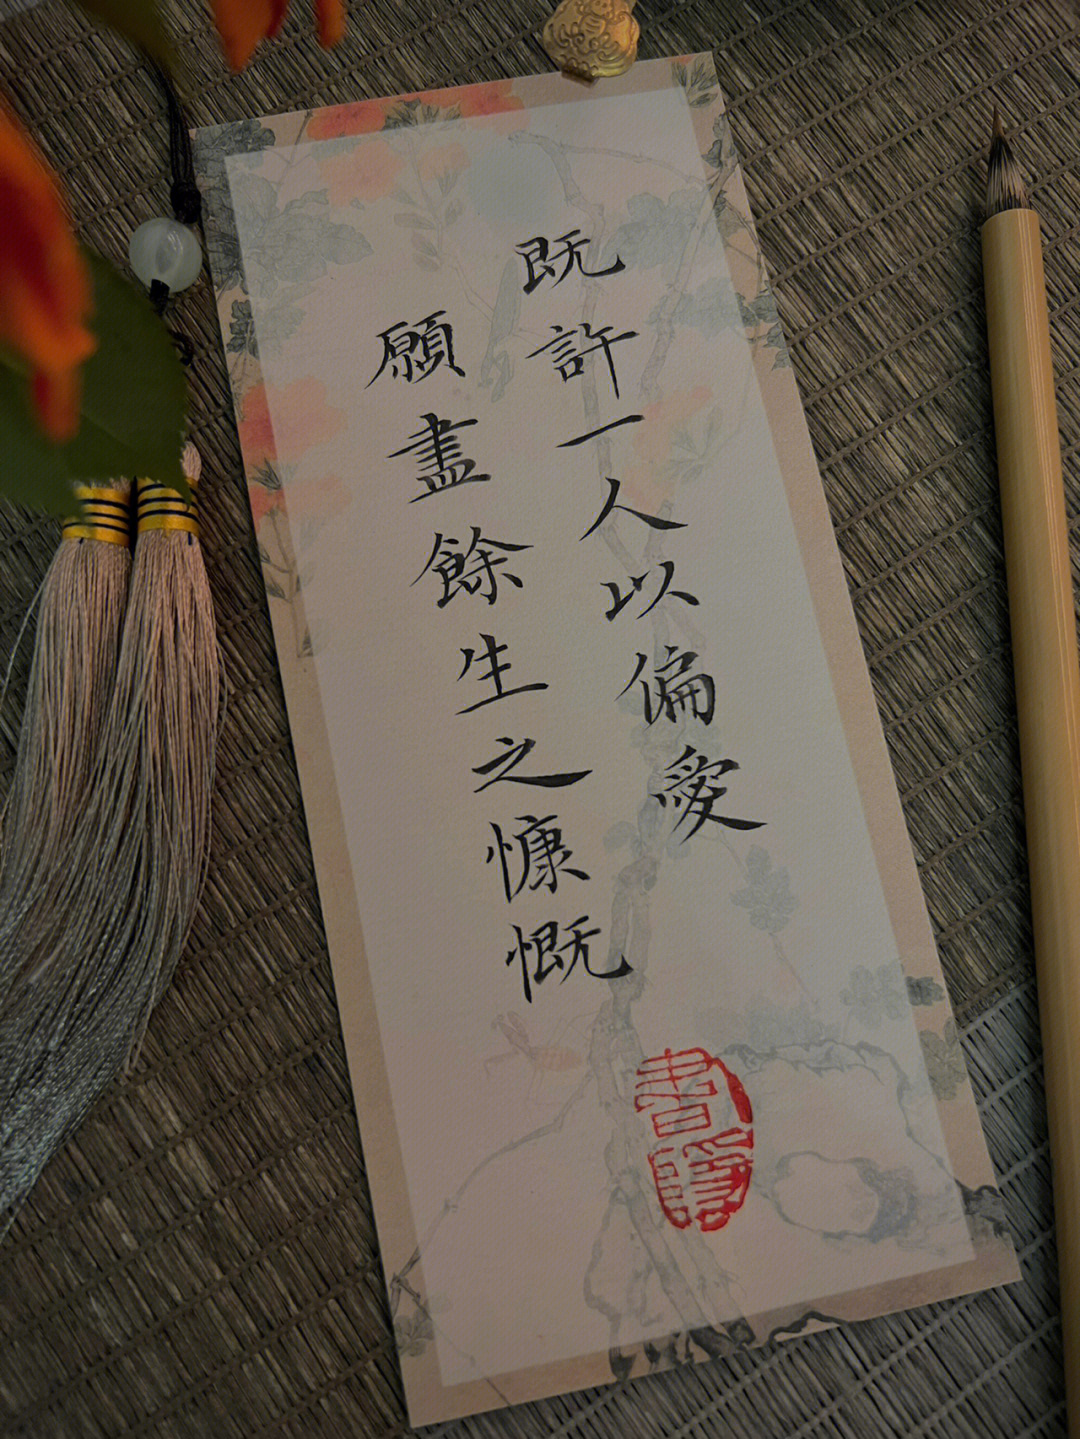 既許一人以偏愛
願盡餘生之慷慨
書